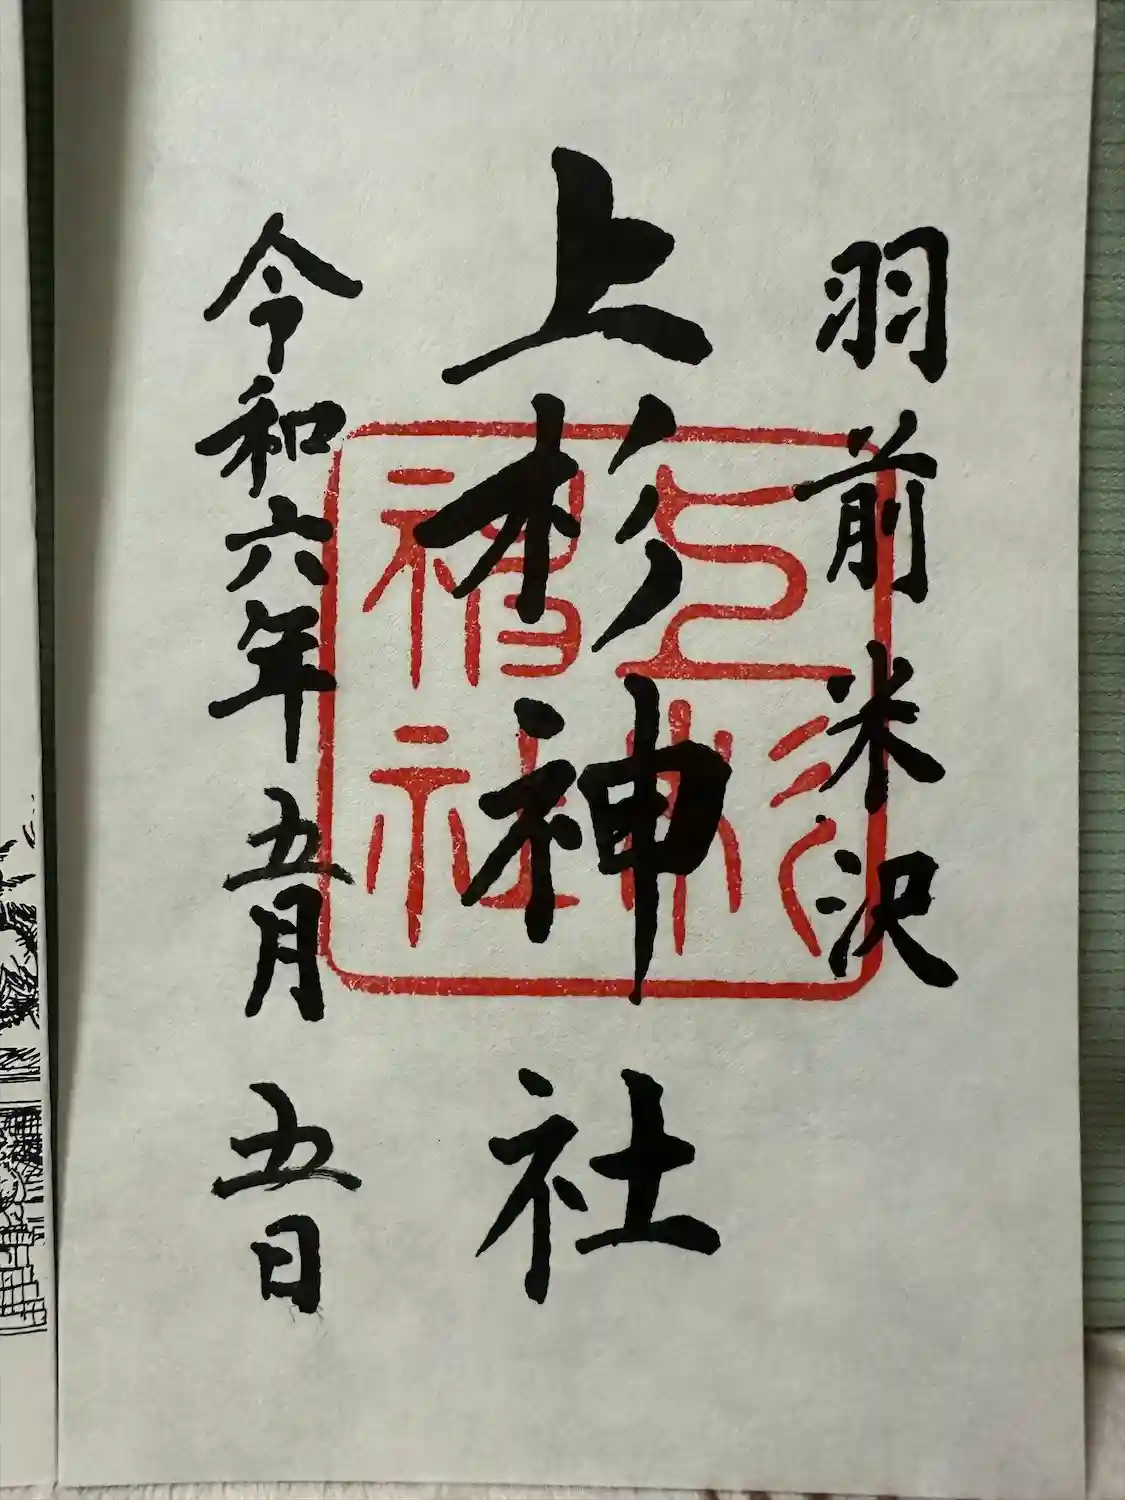 羽前米沢
上杉神社
令和六年五月五日
上杉神社